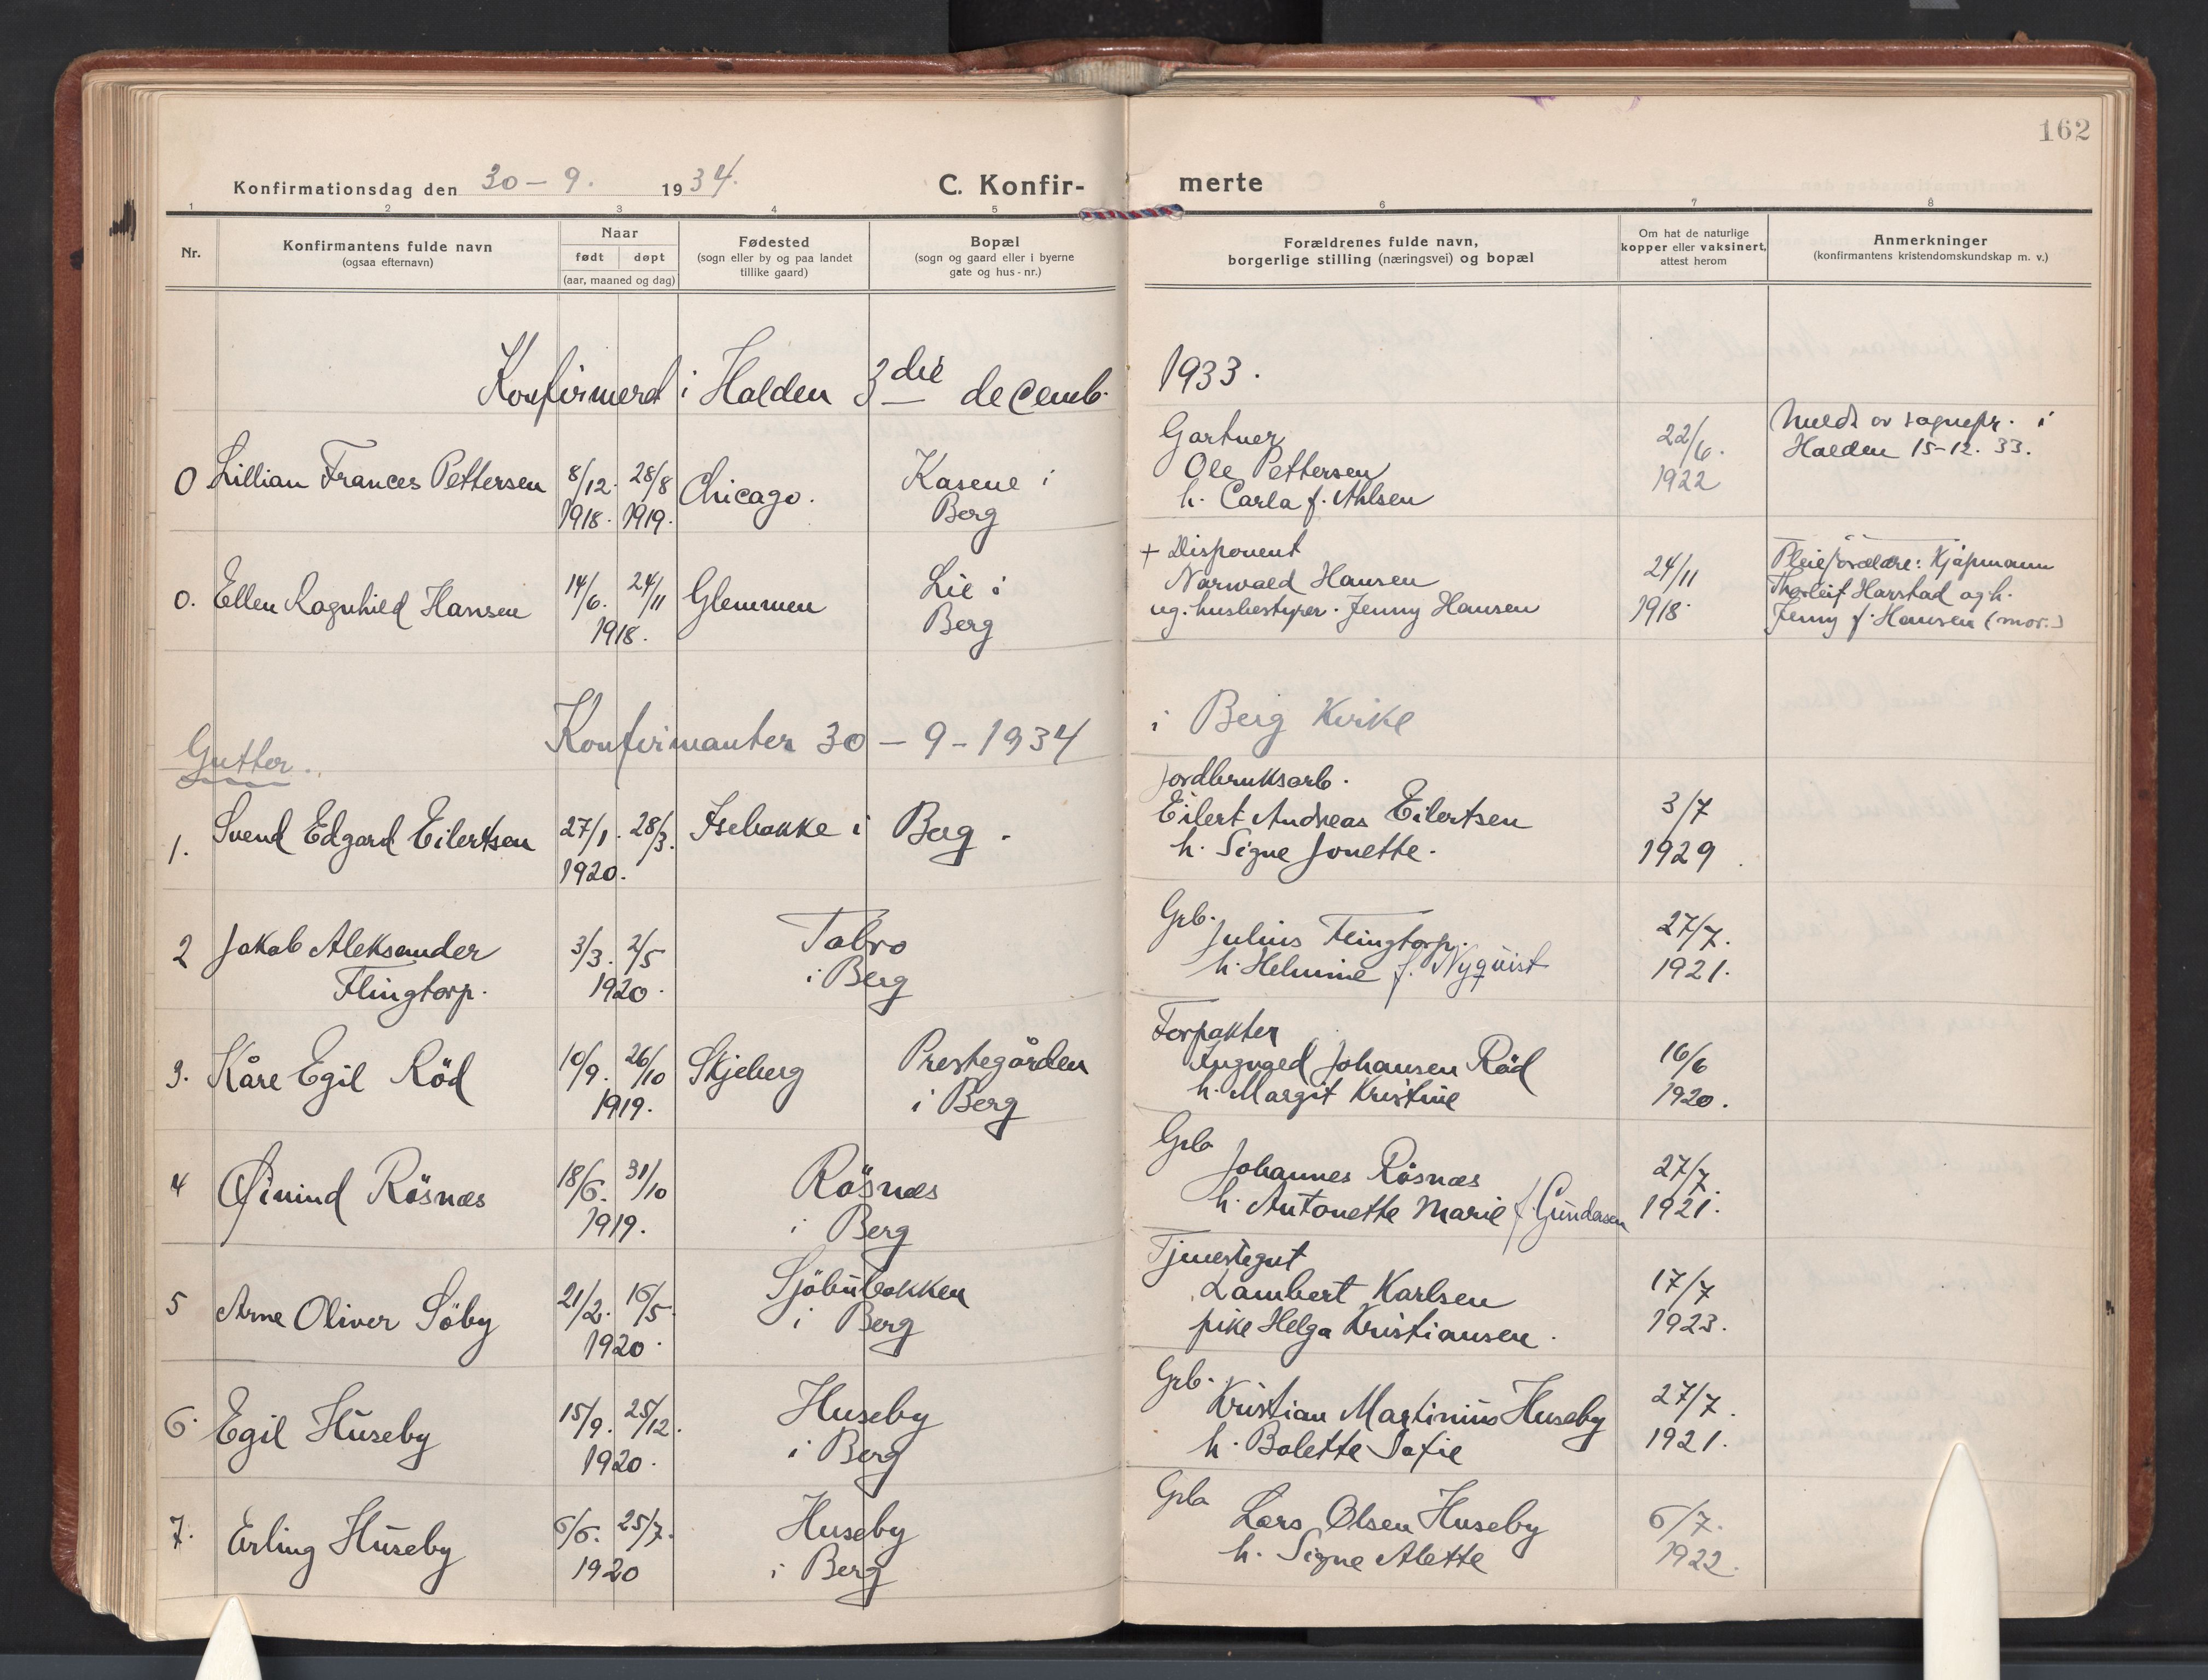 162
Konfirmationsdag den 30 – 9. 1934.
C. Konfir-
merte
1 2 3 4 5 6 7 8
Nr.
Konfirmantens fulde navn
(ogsaa efternavn)
Naar
født døpt
(aar, maaned og dag)
Fødested
(sogn eller by og paa landet
tillike gaard)
Bopæl
(sogn og gaard eller i byerne
gate og hus-nr.)
Forældrenes fulde navn,
borgerlige stilling (næringsvei) og bopæl
Om hat de naturlige
kopper eller vaksinert,
attest herom
Anmerkninger
(konfirmantens kristendomskundskap m. v.)
Konfirmert i Halden 3die decemb. 1933.
0 Lillian Frances Pettersen
8/12. 28/8
1918. 1919.
Chicago.
Kasene i
Berg
Gartner
Ole Pettersen
h. Carla f. Ahlsen
22/6.
1922
Meldt av sognepr. i
Halden 15-12. 33.
0. Ellen Ragnhild Hansen
14/6. 24/11
1918.
Glemmen
Lie i
Berg
+ Disponent
Narwald Hansen
ug. husbestyrer. Jenny Hansen
24/11
1918.
Pleieforældre: Kjøpmann
Thorleif Harstad og h.
Jenny f. Hansen (mor.)
Konfirmanter 30 – 9 – 1934 i Berg Kirke
Gutter.
1. Svend Edgard Eilertsen
27/1. 28/3.
1920.
Isebakke i Berg.
Jordbruksarb.
Eilert Andreas Eilertsen
h. Signe Jonette.
3/7
1929.
2 Jakob Aleksander
Flingtorp.
3/3. 2/5
1920.
Tabro
i Berg
Grb.
Julius Flingtorp.
h. Helmine f. Nyquist
27/7.
1921.
3. Kåre Egil Röd
10/9. 26/10
1919.
Skjeberg
Prestegården
i Berg
Forpakter
Johansen Röd
h. Margit Kristine
16/6
1920.
4 Øivind Rösnæs
18/6. 31/10
1919.
Rösnæs
i Berg
Grb
Johannes Rösnæs
h. Antonette Marie f. Gundersen
27/7.
1921.
5 Arne Oliver Söby
21/2. 16/5.
1920.
Sjöbubakken
i Berg
Tjenestegut
Lambert Karlsen
pike Helga Kristiansen.
17/7
1923.
6. Egil Huseby
15/9. 25/12.
1920.
Huseby
i Berg
Grb.
Kristian Martinius Huseby
h. Bolette Sofie
27/7.
1921.
7. Erling Huseby
6/6. 25/7.
1920
Huseby
i Berg
Grb
Lars Olsen Huseby
h. Signe Alette
6/7.
1922.